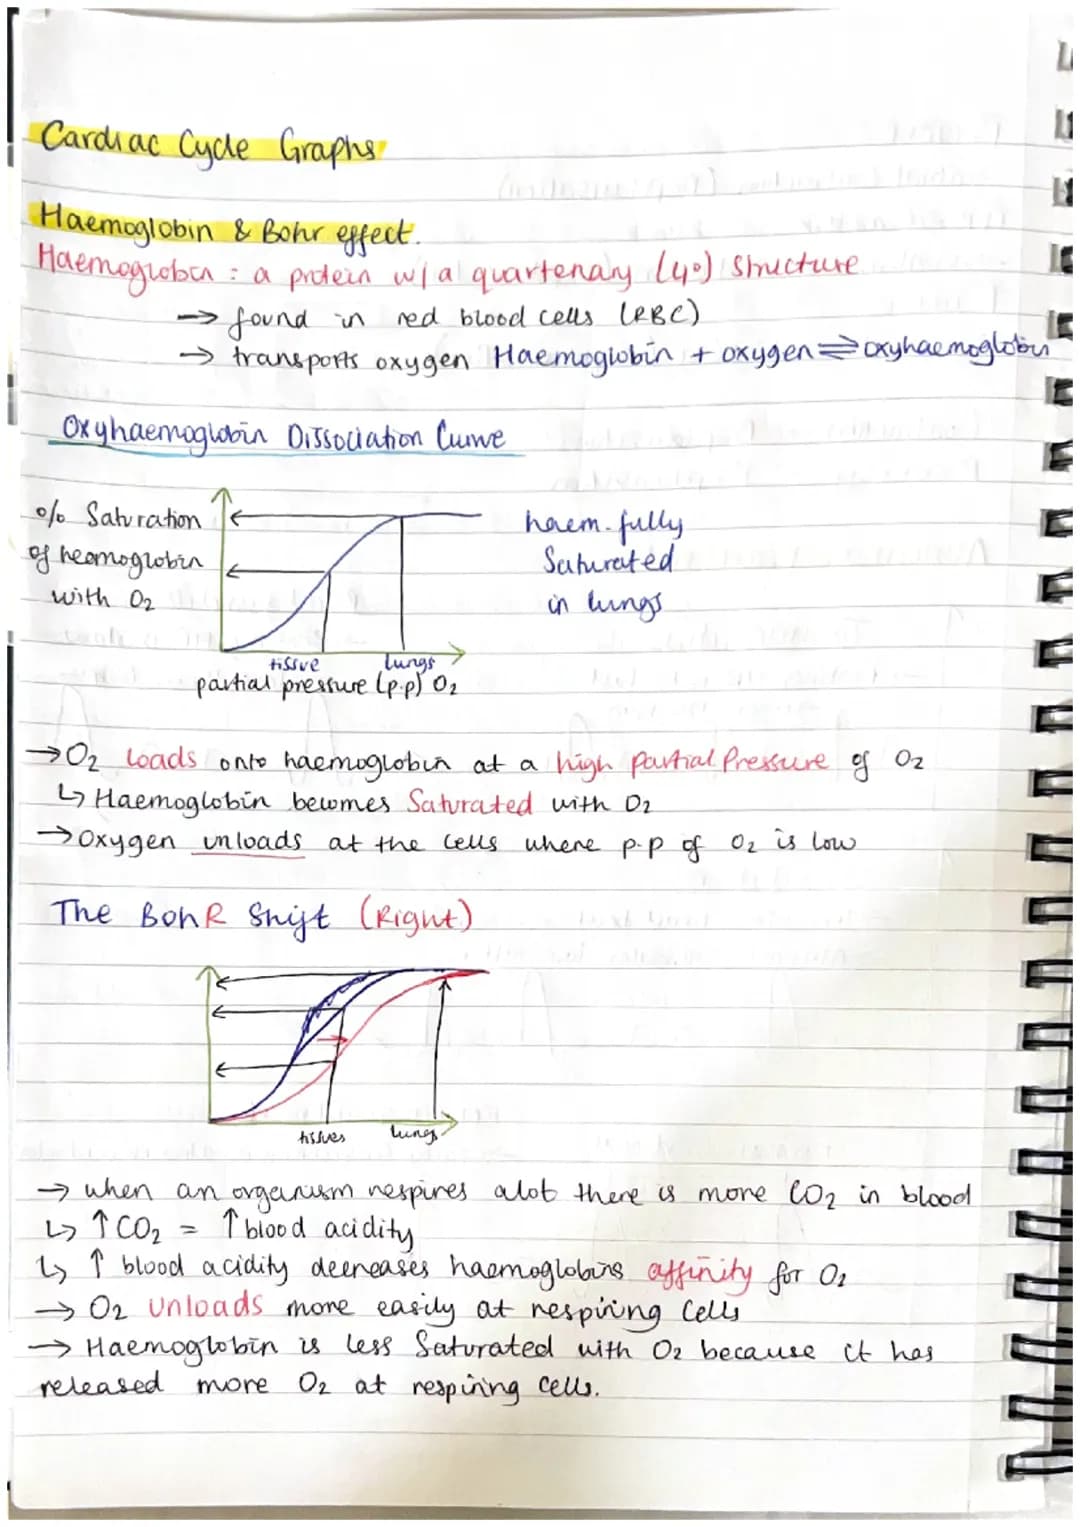 Cardiac Cycle Graphs
Haemoglobin & Bohr effect.
Haemoglobin : a protein w/ a quartenary (4°) structure
→ found in red blood cells (RBC)
→ transports oxygen Haemoglobin + oxygen ⇌ oxyhaemoglobin
Oxyhaemoglobin Dissociation Curve
% Saturation
of heamoglobin
with O₂
haem. fully
Saturated
in lungs
tissue lungs
partial pressure (p.p) O₂
→ O₂ loads onto haemoglobin at a high partial Pressure of O₂
↳ Haemoglobin becomes Saturated with O₂
→ Oxygen unloads at the cells where p.p of O₂ is low
The BohR Shift (Right)
tissues lungs
→ when an organism respires alot there is more CO₂ in blood
↳ ↑ CO₂ = ↑ blood acidity
↳ ↑ blood acidity decreases haemoglobins affinity for O₂
→ O₂ Unloads more easily at respiring cells
→ Haemoglobin is less Saturated with O₂ because it has
released more O₂ at respiring cells.